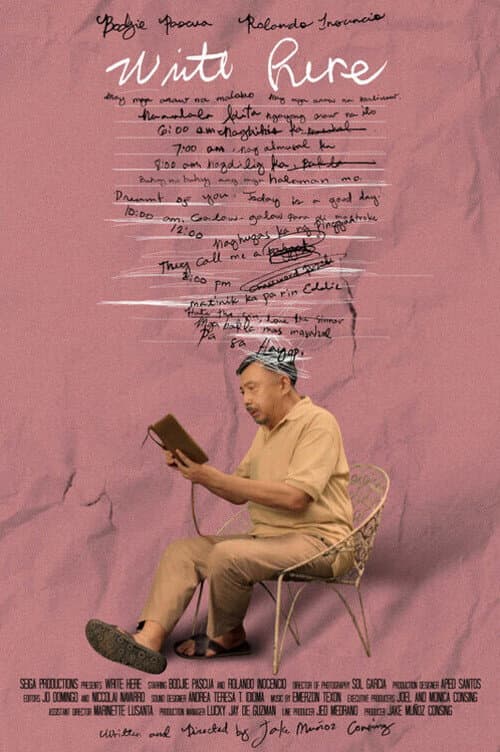 Bodjie Pascua Rolando Inocencio
Write Here
May mga araw na malabo May mga araw na
Naaalala kita ngayong araw na ito
6:00 am nagbihis ka
7:00 am, nag almusal ka
8:00 am nagdilig ka,
Buhay na buhay ang mga halaman mo.
Dreamt of you. Today is a good day.
10:00 am. Galaw-galaw para di mastroke
12:00
naghugas ka ng pinggan
They call me a
2:00 pm
matinik ka parin Eddie
Hate the sin, love the sinner
Mga bakla mas masahol
pa sa Hayop.
SEIGA PRODUCTIONS PRESENTS WRITE HERE STARRING BODJIE PASCUA AND ROLANDO INOCENCIO DIRECTOR OF PHOTOGRAPHY SOL GARCIA PRODUCTION DESIGNER APED SANTOS
EDITORS JO DOMINGO AND NICCOLAI NAVARRO SOUND DESIGNER ANDREA TERESA T. IDIOMA MUSIC BY EMERZON TEXON EXECUTIVE PRODUCERS JOEL AND MONICA CONSING
ASSISTANT DIRECTOR MARINETTE LUSANTA PRODUCTION MANAGER LUCKY JAY DE GUZMAN LINE PRODUCER JED MEDRANO PRODUCER JAKE MUÑOZ CONSING
Written and Directed by Jake Muñoz Consing